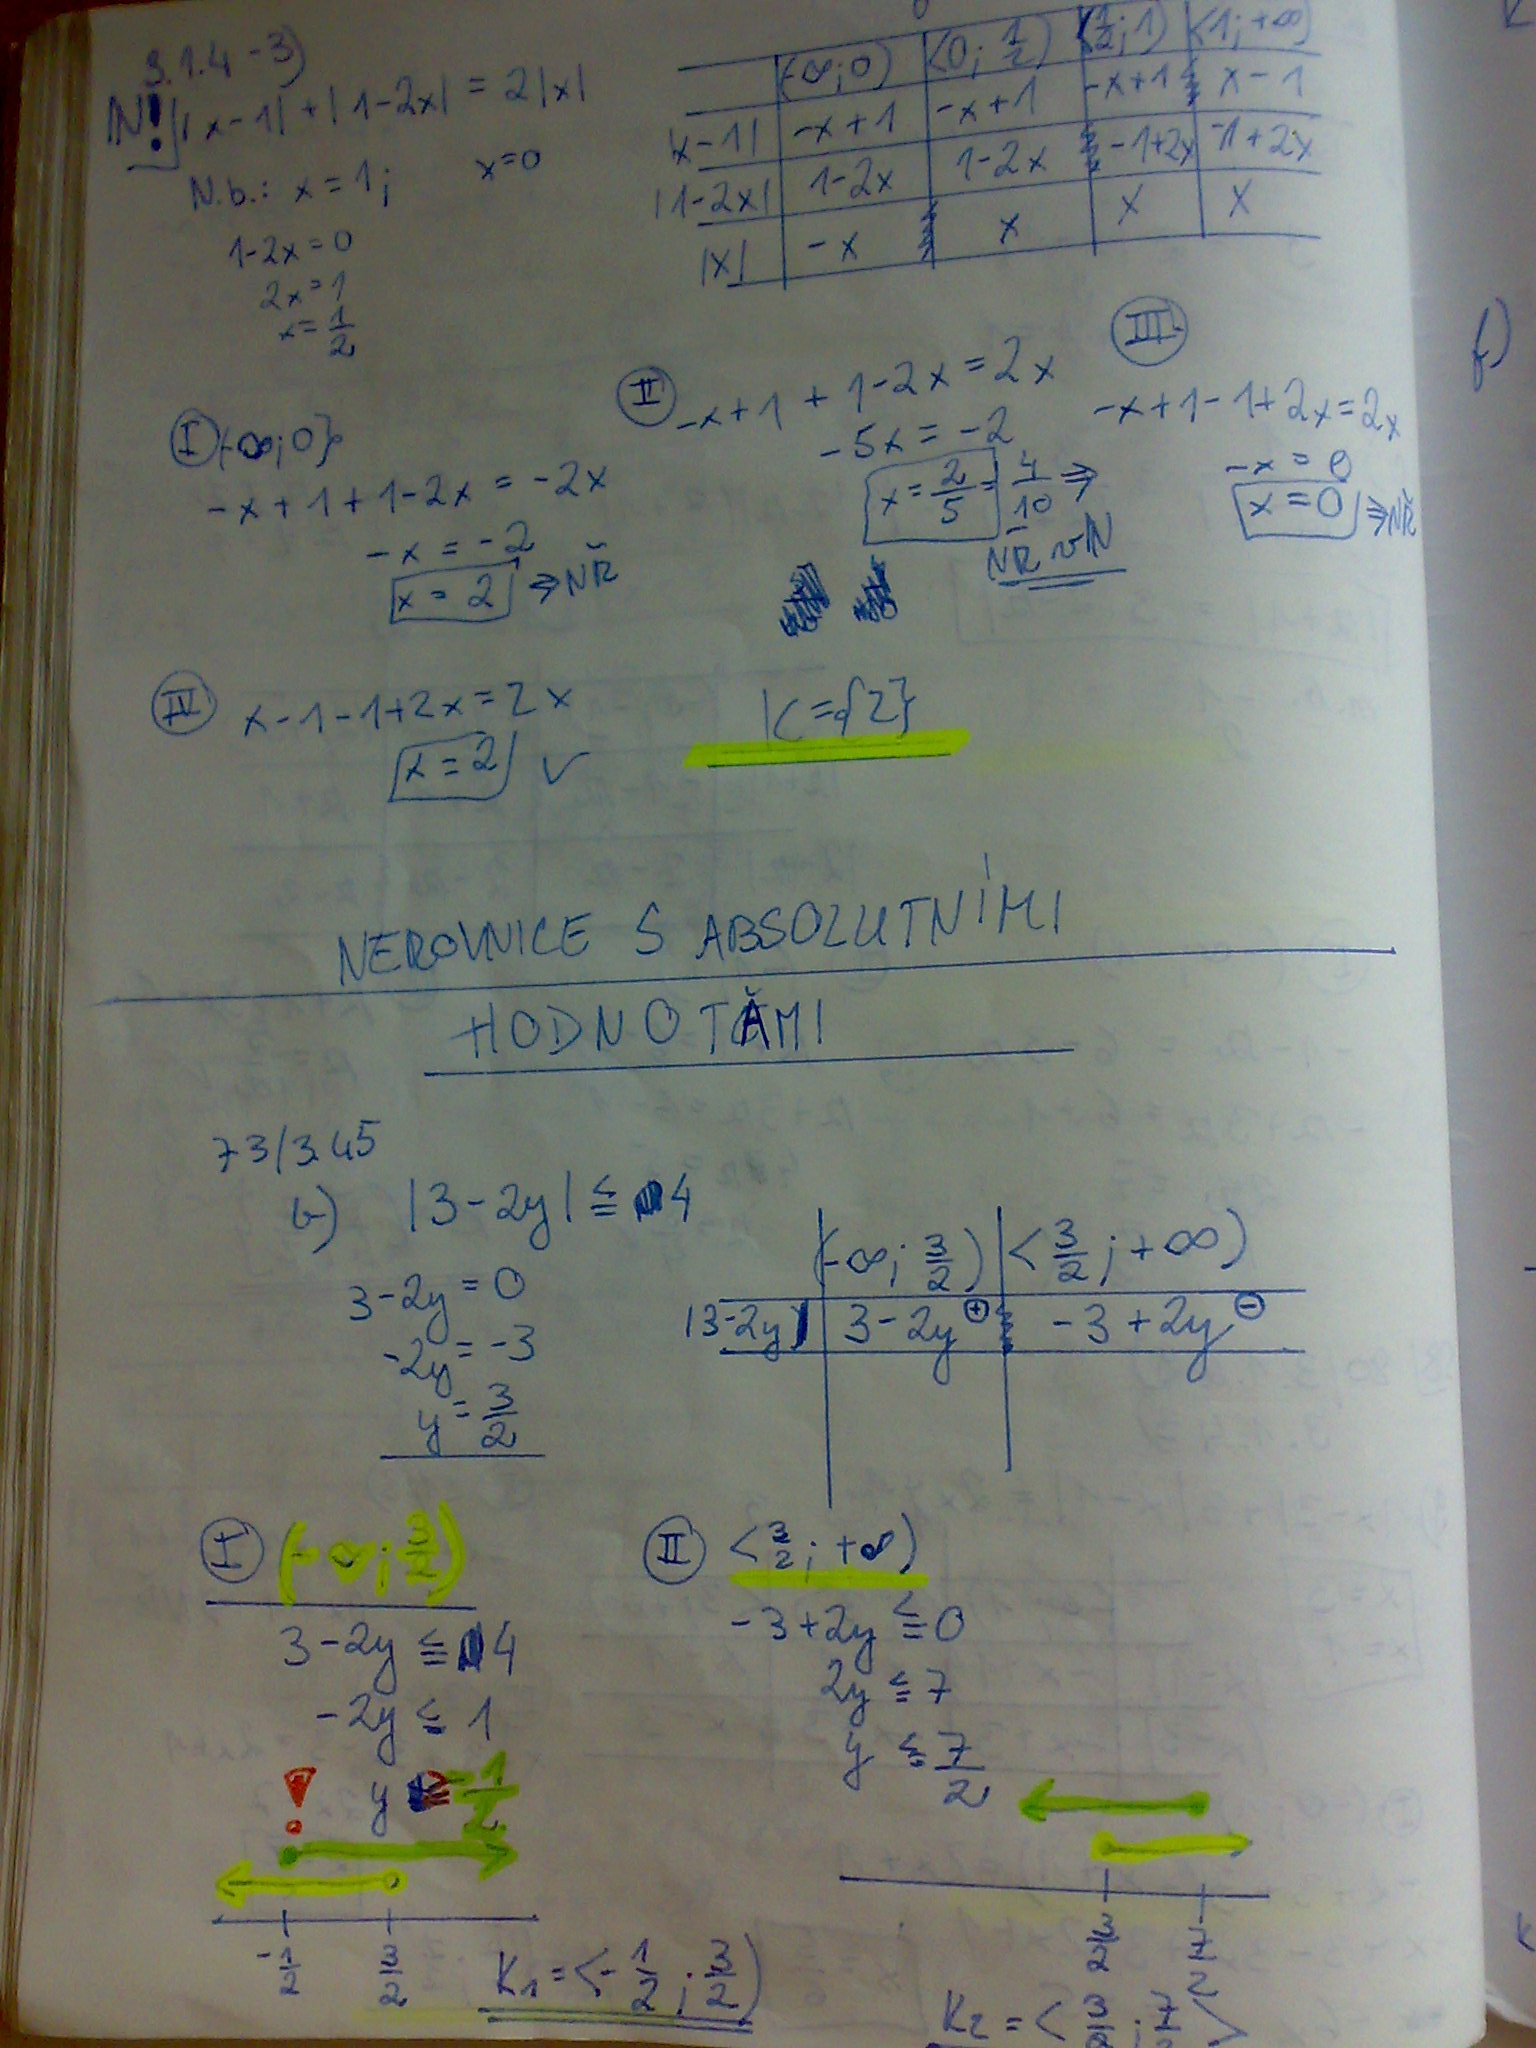 3.1.4 -3)
N! |x-1| + |1-2x| = 2|x|
N.b.: x = 1; x=0
1-2x = 0
2x = 1
x = 1/2
(-∞;0) <0; 1/2) <1/2; 1) <1; +∞)
|x-1| -x+1 -x+1 -x+1 x-1
|1-2x| 1-2x 1-2x -1+2x -1+2x
|x| -x x x x
I (-∞;0)
-x+1+1-2x = -2x
-x = -2
x = 2 ⇒ NŘ
II -x+1 + 1-2x = 2x
-5x = -2
x = 2/5 = 4/10 ⇒
NŘ v N
III
-x+1-1+2x=2x
-x = 0
x = 0 ⇒ NŘ
IV x-1-1+2x=2x
x = 2 ✓
K={2}
NEROVNICE S ABSOLUTNÍMI
HODNOTAMI
73/3.45
b) |3-2y| ≦ 4
3-2y = 0
-2y = -3
y = 3/2
(-∞; 3/2) <3/2; +∞)
|3-2y| 3-2y ⊕ -3+2y ⊖
I (-∞; 3/2)
3-2y ≦ 4
-2y ≦ 1
! y ≧ -1/2
-1/2 3/2
K1 = <-1/2; 3/2)
II <3/2; +∞)
-3+2y ≦ 0
2y ≦ 7
y ≦ 7/2
3/2 7/2
K2 = <3/2; 7/2>
f)